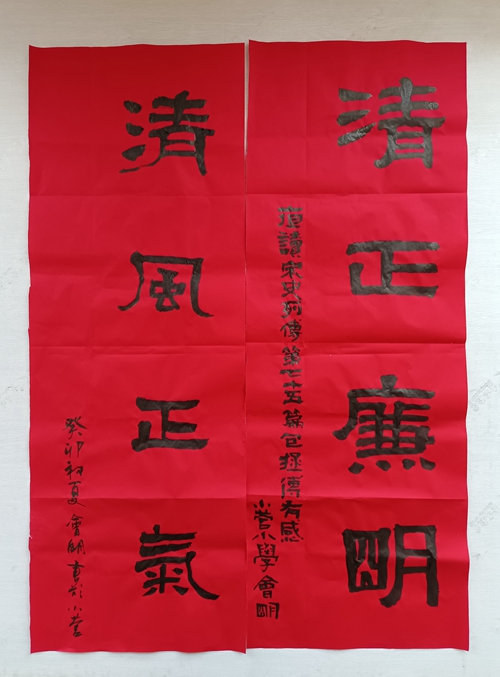 清正廉明
頂讀宋史列傳第七十五篇包拯傳有感
小营小學會明
清風正氣
癸卯初夏會明書於小营